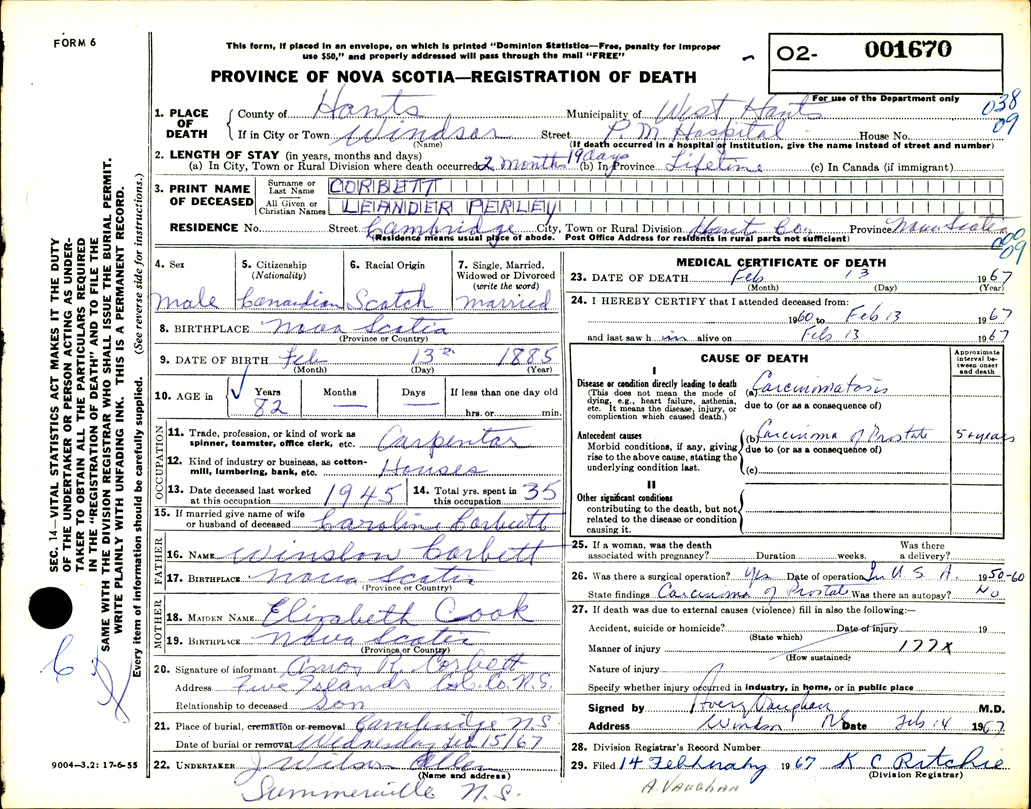 FORM 6
This form, if placed in an envelope, on which is printed "Dominion Statistics—Free, penalty for improper
use $50," and properly addressed will pass through the mail "FREE"
PROVINCE OF NOVA SCOTIA—REGISTRATION OF DEATH
02- 001670
For use of the Department only
038
09
1. PLACE OF DEATH
County of Hants Municipality of West Hants
If in City or Town Windsor Street P M Hospital House No.
(Name) (If death occurred in a hospital or institution, give the name instead of street and number)
2. LENGTH OF STAY (in years, months and days)
(a) In City, Town or Rural Division where death occurred 2 months 19 days (b) In Province Lifetime (c) In Canada (if immigrant)
3. PRINT NAME OF DECEASED
Surname or Last Name CORBETT
All Given or Christian Names LEANDER PERLEY
RESIDENCE No. Street Cambridge City, Town or Rural Division Hants Co. Province Nova Scotia
(Residence means usual place of abode. Post Office Address for residents in rural parts not sufficient)
000
09
4. Sex male
5. Citizenship (Nationality) Canadian
6. Racial Origin Scotch
7. Single, Married, Widowed or Divorced (write the word) married
8. BIRTHPLACE Nova Scotia
(Province or Country)
9. DATE OF BIRTH Feb 13th 1885
(Month) (Day) (Year)
10. AGE in Years 82 Months — Days — If less than one day old hrs. or min.
OCCUPATION
11. Trade, profession, or kind of work as spinner, teamster, office clerk, etc. Carpentar
12. Kind of industry or business, as cotton-mill, lumbering, bank, etc. Houses
13. Date deceased last worked at this occupation 1945 14. Total yrs. spent in this occupation 35
15. If married give name of wife or husband of deceased Caroline Corbett
FATHER
16. NAME Winslow Corbett
17. BIRTHPLACE Nova Scotia
(Province or Country)
MOTHER
18. MAIDEN NAME Elizabeth Cook
19. BIRTHPLACE Nova Scotia
(Province or Country)
20. Signature of informant Amos R Corbett
Address Five Islands Col. Co. N.S.
Relationship to deceased son
21. Place of burial, cremation or removal Cambridge N.S.
Date of burial or removal Wednesday Feb 15/67
22. UNDERTAKER J Wilson Allen
(Name and address)
Summerville N.S.
MEDICAL CERTIFICATE OF DEATH
23. DATE OF DEATH Feb 13 1967
(Month) (Day) (Year)
24. I HEREBY CERTIFY that I attended deceased from:
1960 to Feb 13 1967
and last saw him alive on Feb 13 1967
CAUSE OF DEATH
Approximate interval between onset and death
I
Disease or condition directly leading to death
(This does not mean the mode of dying, e.g., heart failure, asthenia, etc. It means the disease, injury, or complication which caused death.)
(a) Carcinomatosis
due to (or as a consequence of)
Antecedent causes
Morbid conditions, if any, giving rise to the above cause, stating the underlying condition last.
(b) Carcinoma of Prostate 5+years
due to (or as a consequence of)
(c)
II
Other significant conditions
contributing to the death, but not related to the disease or condition causing it.
25. If a woman, was the death associated with pregnancy? Duration weeks. Was there a delivery?
26. Was there a surgical operation? Yes Date of operation In U.S.A. 1950-60
State findings Carcinoma of Prostate Was there an autopsy? No
27. If death was due to external causes (violence) fill in also the following:—
Accident, suicide or homicide? Date of injury 19
(State which)
Manner of injury 177X
(How sustained)
Nature of injury
Specify whether injury occurred in industry, in home, or in public place
Signed by Avery Vaughan M.D.
Address Windsor NS Date Feb 14 1967
28. Division Registrar's Record Number
29. Filed 14 February 1967 K C Ritchie
(Division Registrar)
A. Vaughan
SEC. 14—VITAL STATISTICS ACT MAKES IT THE DUTY
OF THE UNDERTAKER OR PERSON ACTING AS UNDER-
TAKER TO OBTAIN ALL THE PARTICULARS REQUIRED
IN THE "REGISTRATION OF DEATH" AND TO FILE THE
SAME WITH THE DIVISION REGISTRAR WHO SHALL ISSUE THE BURIAL PERMIT.
WRITE PLAINLY WITH UNFADING INK. THIS IS A PERMANENT RECORD.
Every item of information should be carefully supplied. (See reverse side for instructions.)
9004—3.2: 17-6-55